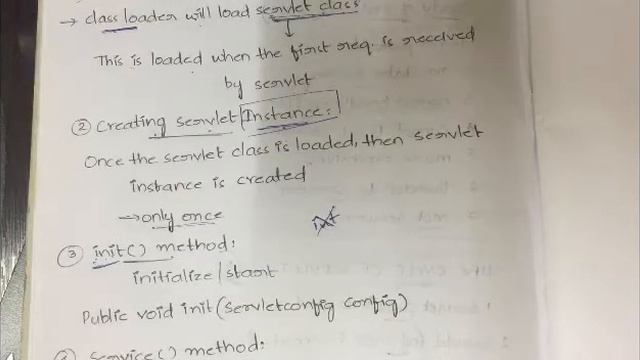 → class loader will load servlet class
↓
This is loaded when the first req. is received
by servlet
② Creating servlet/Instance:
Once the servlet class is loaded, then servlet
instance is created
→ only once
③ init() method:
initialize/start
Public void init(Servletconfig config)
service() method: